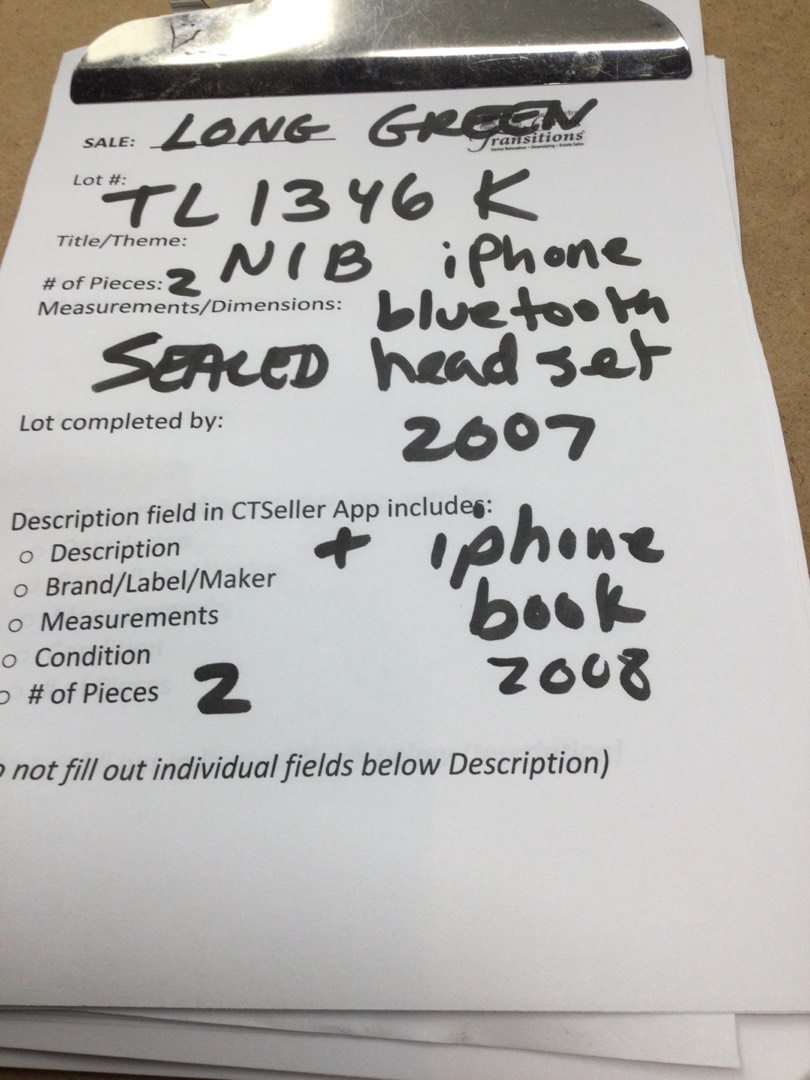 SALE: LONG GREEN
Transitions
Lot #: TL1346 K
Title/Theme: NIB iphone
# of Pieces: 2
Measurements/Dimensions: bluetooth
SEALED headset
Lot completed by: 2007
Description field in CTSeller App includes:
o Description + iphone
o Brand/Label/Maker book
o Measurements
o Condition 2008
o # of Pieces 2
not fill out individual fields below Description)